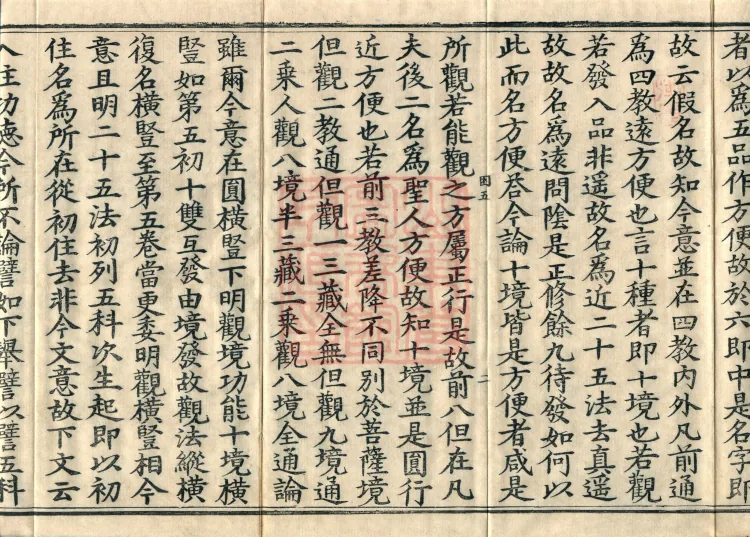 者以為五品作方便故於六即中是名字即
故云假名故知今意並在四教內外凡前通
為四教遠方便也言十種者即十境也若觀
若發入品非遥故名為近二十五法去真遥
故故名為遠問陰是正修餘九待發如何以
此而名方便荅今論十境皆是方便者咸是
所觀若能觀之方屬正行是故前八但在凡
夫後二名為聖人方便故知十境並是圓行
近方便也若前三教差降不同別於菩薩境
但觀二教通但觀一三藏全無但觀九境通
二乘人觀八境半三藏二乘觀八境全通論
雖爾今意在圓橫豎下明觀境功能十境橫
豎如第五初十雙互發由境發故觀法縱橫
復名橫豎至第五卷當更委明觀橫豎相今
意且明二十五法初列五科次生起即以初
住名為所在從初住去非今文意故下文云
入住功德今所不論譬如下舉譬以譬五科